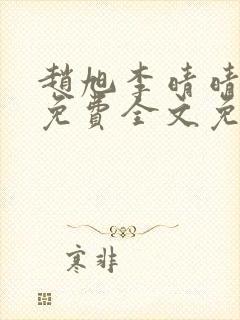 趙旭李晴晴
免費全文免
寒非